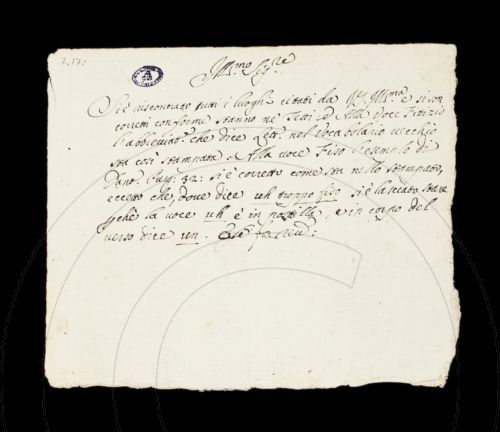 7.170
Ill.mo Sig.re
Si è riscontrato tutti i luoghi citati da V.S. Ill.ma e si son
corretti conforme stanno ne' Testi e Alla voce Fitizio
l'abbreviat.a che dice nel vocabolario vecchio
sta così stampata. Alla voce Fiso l'esempio di
Dant. Purg. 32: si è corretto come sta nello stampato,
eccetto che, dove dice uh troppo fiso si è lasciato stare
perché la voce uh è in postilla, e in corpo del
verso dice un.